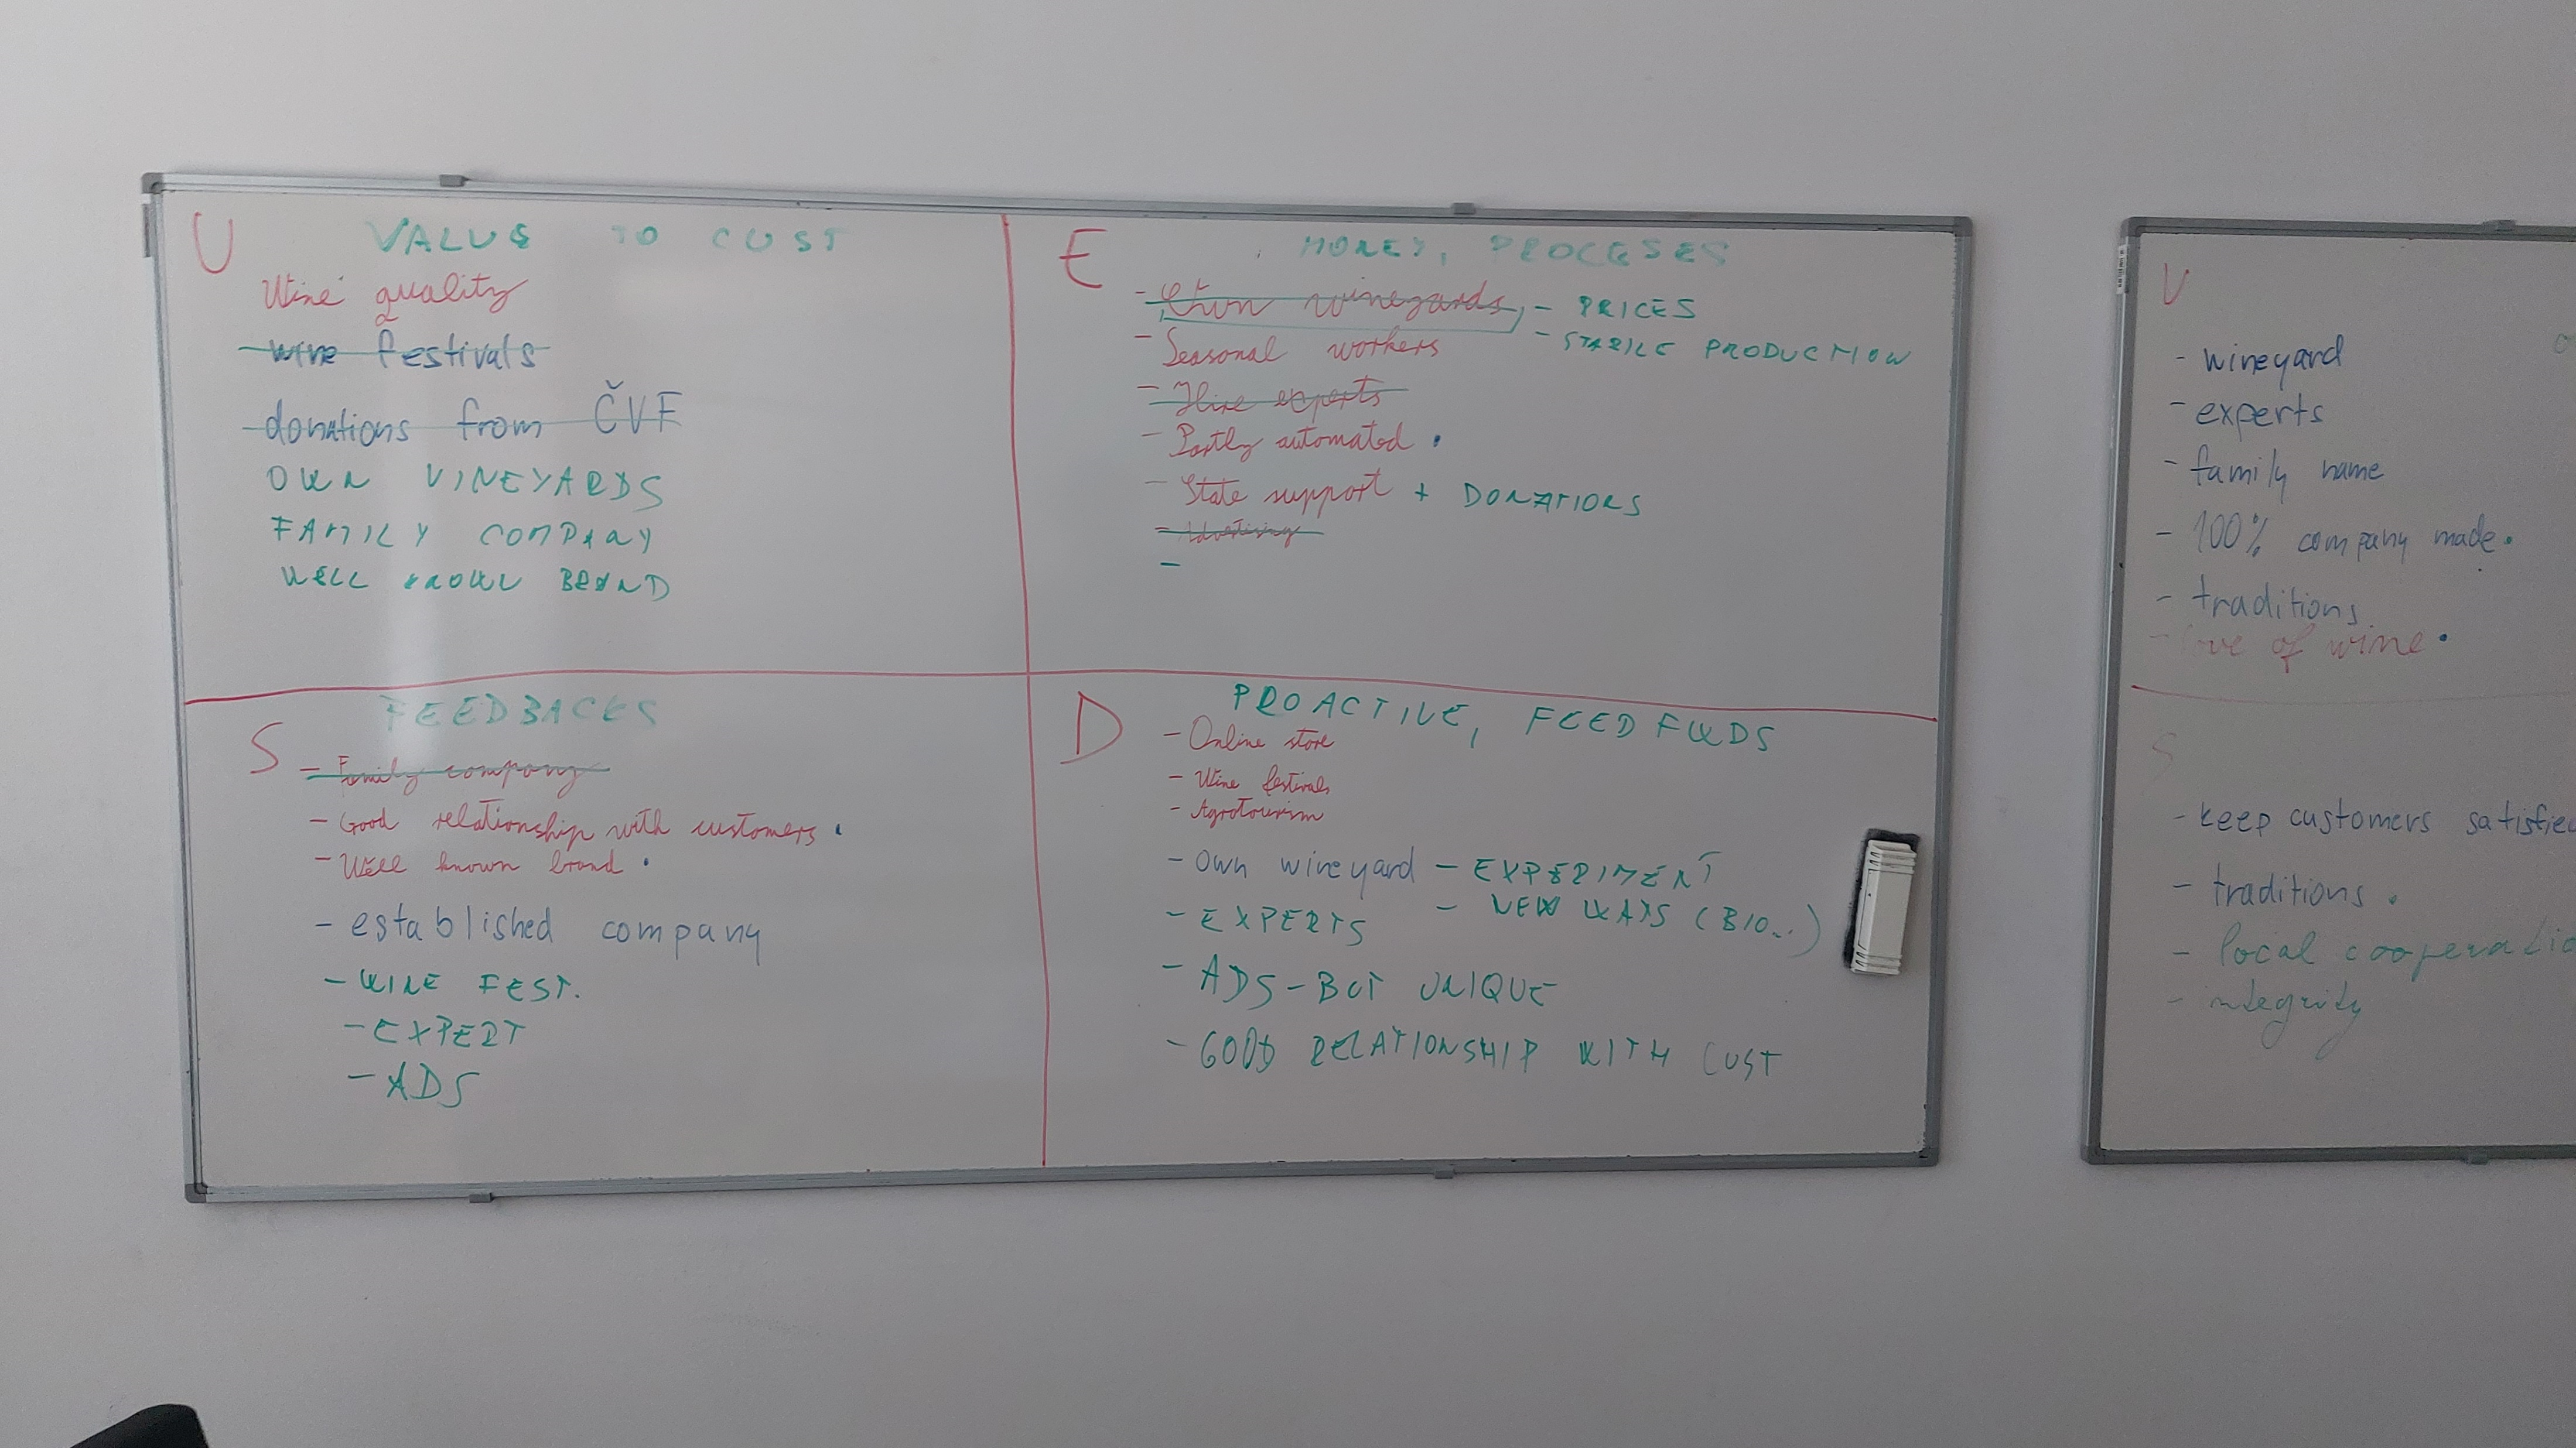 U VALUE TO CUST
Wine quality
- wine festivals
- donations from ČVF
OWN VINEYARDS
FAMILY COMPANY
WELL KNOWN BRAND
E MONEY, PROCESES
- Own wineyards - PRICES
- STABILE PRODUCTION
- Seasonal workers
- Hire experts
- Partly automated
- State support + DONATIONS
- Advertising
-
S FEEDBACKS
- Family company
- Good relationship with customers
- Well known brand
- established company
- WINE FEST.
- EXPERT
- ADS
D PROACTIVE, FEED FWDS
- Online store
- Wine festivals
- Agrotourism
- Own wineyard - EXPERIMENT
- EXPERTS - NEW WAYS (BIO...)
- ADS - BUT UNIQUE
- GOOD RELATIONSHIP WITH CUST
V
- wineyard
- experts
- family name
- 100% company made.
- traditions
- love of wine
S
- keep customers
- traditions
- local
- integrity